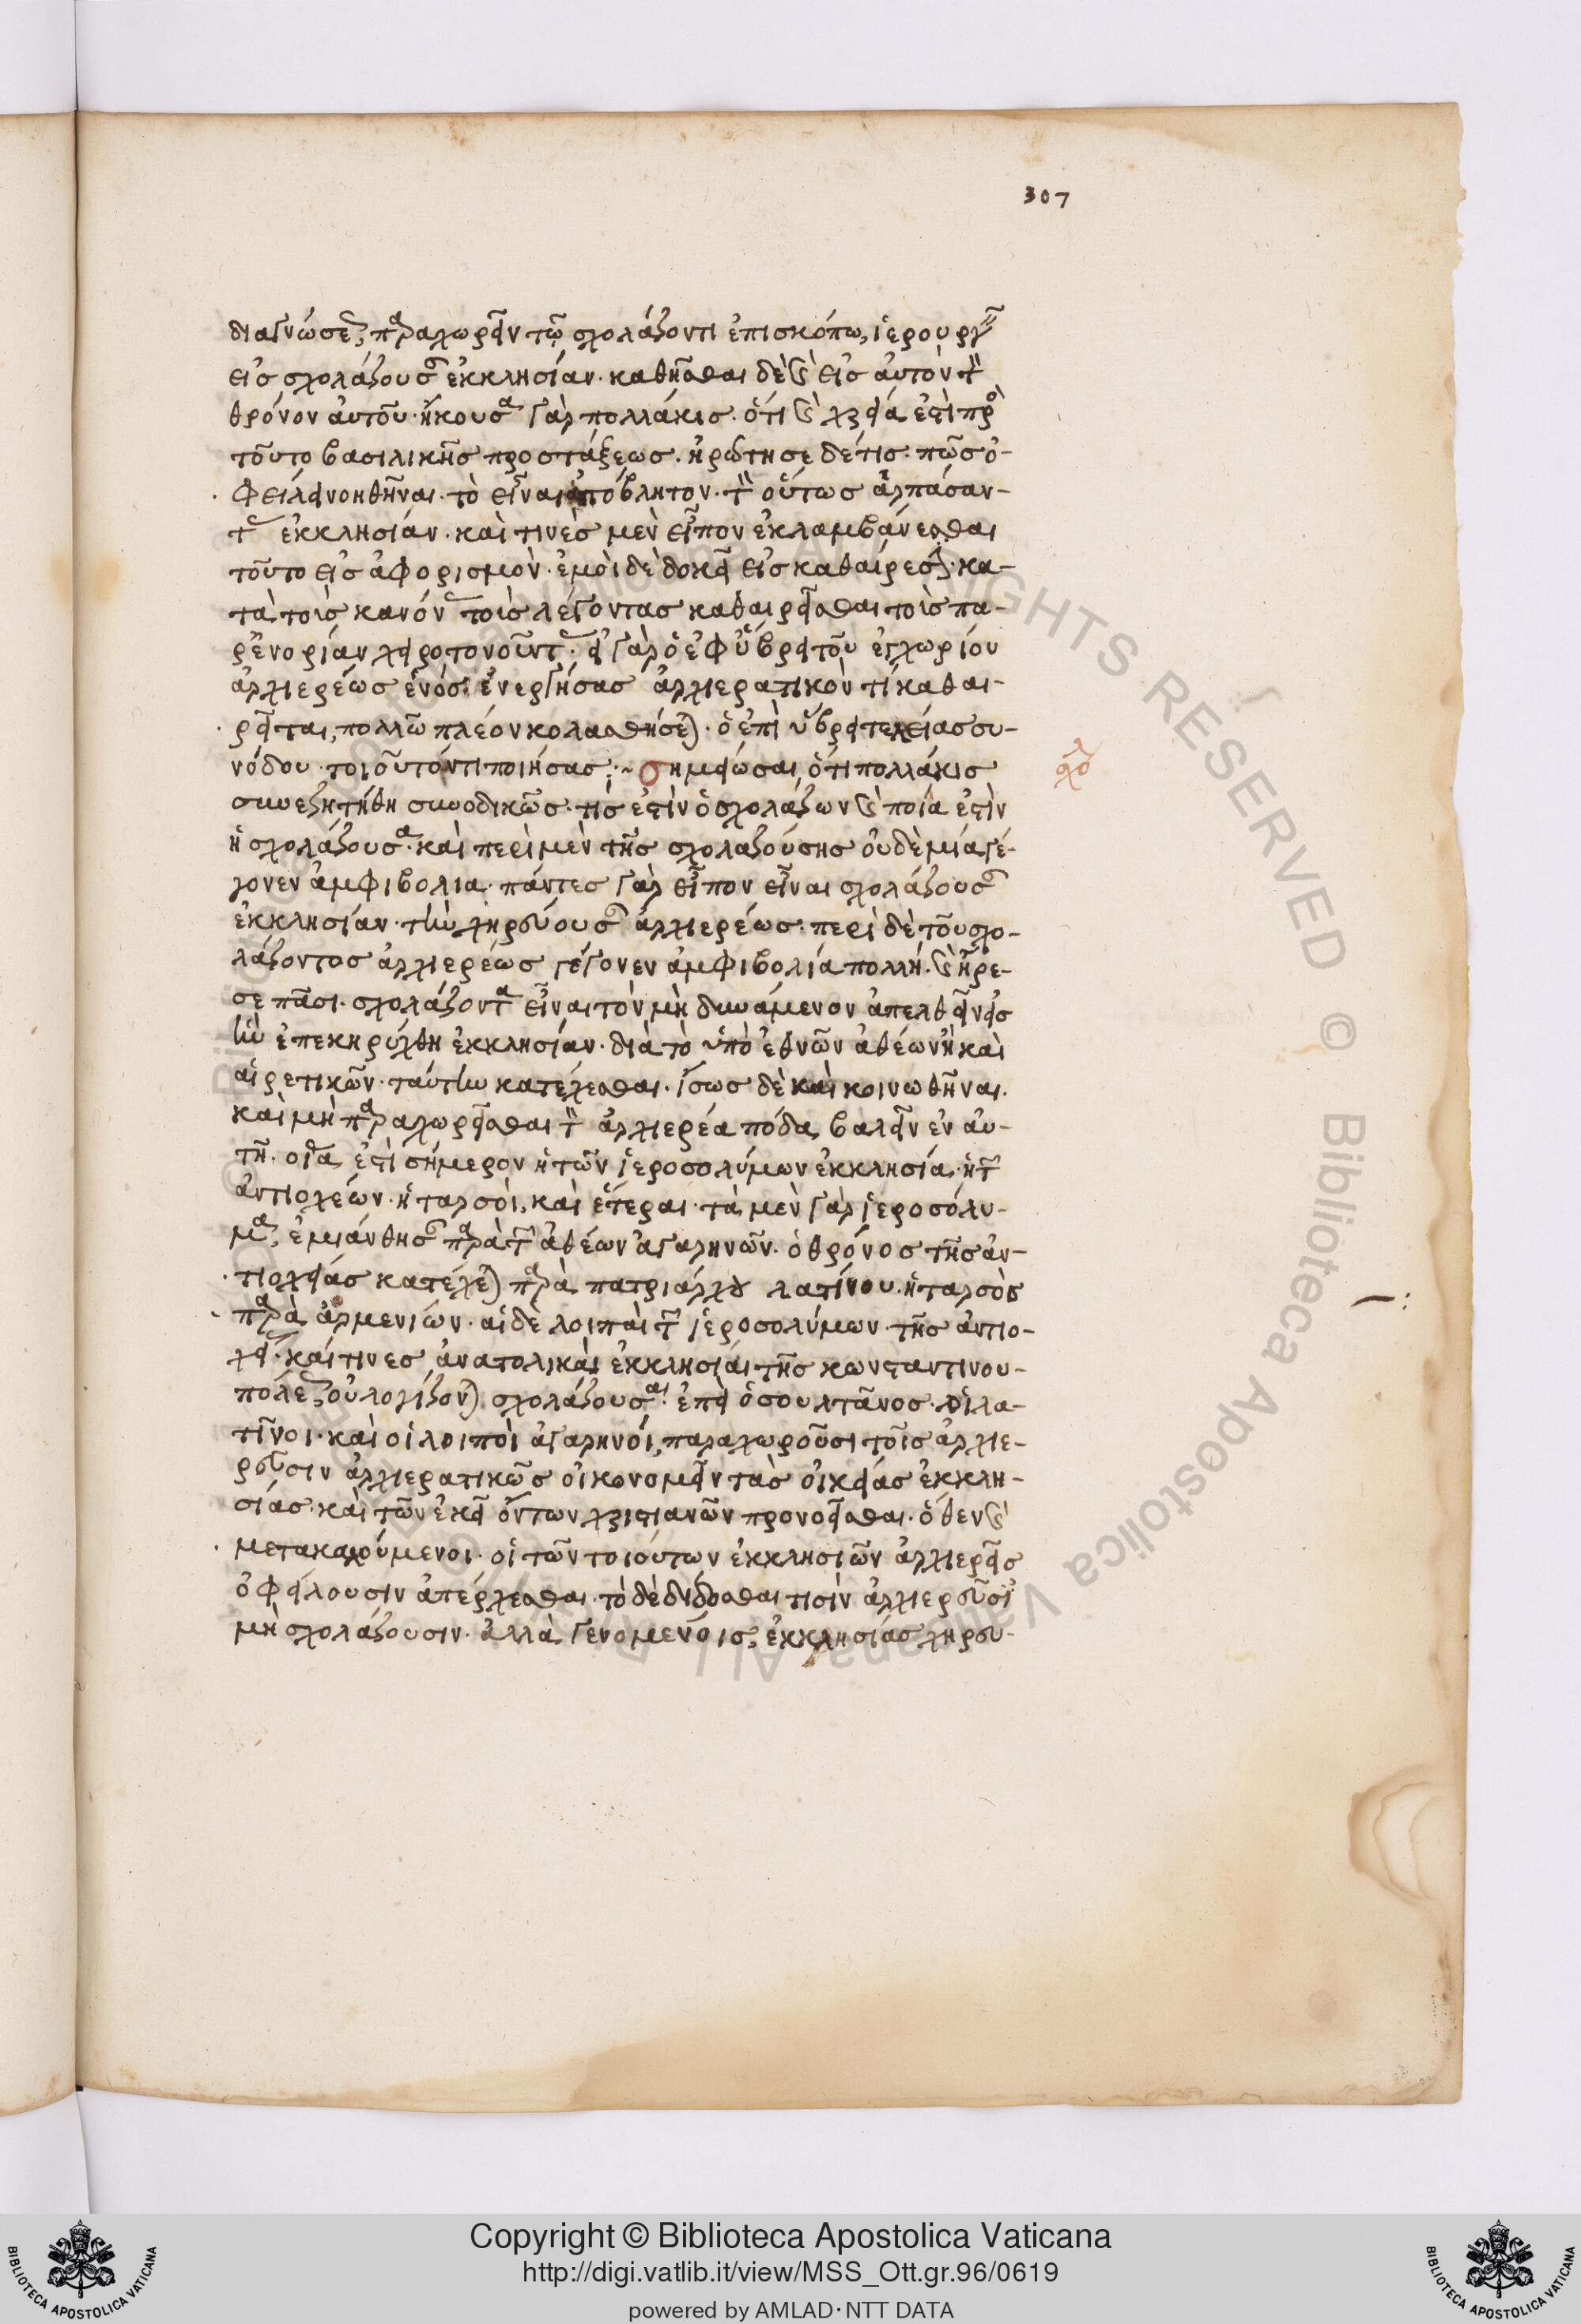 307
διαγνώσεως παραχωρεῖν τῷ σχολάζοντι ἐπισκόπω, ἱερουργεῖν
εἰς σχολάζουσαν ἐκκλησίαν· καθῆσθαι δὲ καὶ εἰς αὐτὸν τὸν
θρόνον αὐτοῦ· ἤκουσα γὰρ πολλάκις· ὅτι καὶ χρεία ἐστὶ πρὸς
τοῦτο βασιλικῆς προστάξεως. ἠρώτησε δέ τις· πῶς ὀ-
φείλει νοηθῆναι· τὸ εἶναι ἀπόβλητον· τὸν οὕτως ἁρπάσαν-
τα ἐκκλησίαν· καὶ τινὲς μὲν εἶπον ἐκλαμβάνεσθαι
τοῦτο εἰς ἀφορισμόν· ἐμοὶ δὲ δοκεῖ εἰς καθαίρεσιν· κα-
τὰ τοὺς κανόνας τοὺς λέγοντας καθαιρεῖσθαι τοὺς πα-
ρενορίαν χειροτονοῦντας· εἰ γὰρ ὁ ἐφ' ὕβρει τοῦ ἐγχωρίου
ἀρχιερέως ἑνός· ἐνεργήσας ἀρχιερατικόν τι καθαι-
ρεῖται, πολλῶ πλέον κολασθήσεται· ὁ ἐπὶ ὕβρει τελείας συ-
νόδου τοιοῦτόν τι ποιήσας· ~ σημείωσαι, ὅτι πολλάκις
συνεζητήθη συνοδικῶς· τίς ἐστὶν ὁ σχολάζων καὶ ποία ἐστὶν
ἡ σχολάζουσα· καὶ περὶ μὲν τῆς σχολαζούσης οὐδεμία γέ-
γονεν ἀμφιβολία· πάντες γὰρ εἶπον εἶναι σχολάζουσαν
ἐκκλησίαν· τὴν χηρεύουσαν ἀρχιερέως· περὶ δὲ τοῦ σχο-
λάζοντος ἀρχιερέως γέγονεν ἀμφιβολία πολλή· καὶ ἤρε-
σε πᾶσι· σχολάζοντα εἶναι τὸν μὴ δυνάμενον ἀπελθεῖν εἰς
ἣν ἐπεκηρύχθη ἐκκλησίαν· διὰ τὸ ὑπὸ ἐθνῶν ἀθέων ἢ καὶ
αἱρετικῶν· ταύτην κατέχεσθαι. ἴσως δὲ καὶ κοινωθῆναι.
καὶ μὴ παραχωρεῖσθαι τὸν ἀρχιερέα πόδα βαλεῖν ἐν αὐ-
τῆ. οἵα ἐστὶ σήμερον ἡ τῶν ἱεροσολύμων ἐκκλησία· ἡ τῶν
ἀντιοχέων· ἡ ταρσός, καὶ ἕτεραι· τὰ μὲν γὰρ ἱεροσόλυ-
μα, ἐμιάνθησαν παρὰ τῶν ἀθέων ἀγαρηνῶν. ὁ θρόνος τῆς ἀν-
τιοχείας κατέχεται παρὰ πατριάρχου λατίνου. ἡ ταρσὸς
παρὰ ἀρμενίων· αἱ δὲ λοιπαὶ τῶν ἱεροσολύμων· τῆς ἀντιο-
χείας· καί τινες ἀνατολικαὶ ἐκκλησίαι τῆς κωνσταντινου-
πόλεως οὐ λογίζονται σχολάζουσαι· ἐπεὶ ὁ σουλτᾶνος· οἱ λα-
τῖνοι· καὶ οἱ λοιποὶ ἀγαρηνοί, παραχωροῦσι τοῖς ἀρχιε-
ρεῦσιν ἀρχιερατικῶς οἰκονομεῖν τὰς οἰκείας ἐκκλη-
σίας· καὶ τῶν ἐκεῖ ὄντων χριστιανῶν προνοεῖσθαι. ὅθεν καὶ
μετακαλούμενοι· οἱ τῶν τοιούτων ἐκκλησιῶν ἀρχιερεῖς
ὀφείλουσιν ἀπέρχεσθαι. τὸ δὲ δίδοσθαι τισὶν ἀρχιερεῦσι
μὴ σχολάζουσιν· ἀλλὰ γενομένοις, ἐκκλησίας χηρευ-
Copyright © Biblioteca Apostolica Vaticana
http://digi.vatlib.it/view/MSS_Ott.gr.96/0619
powered by AMLAD·NTT DATA